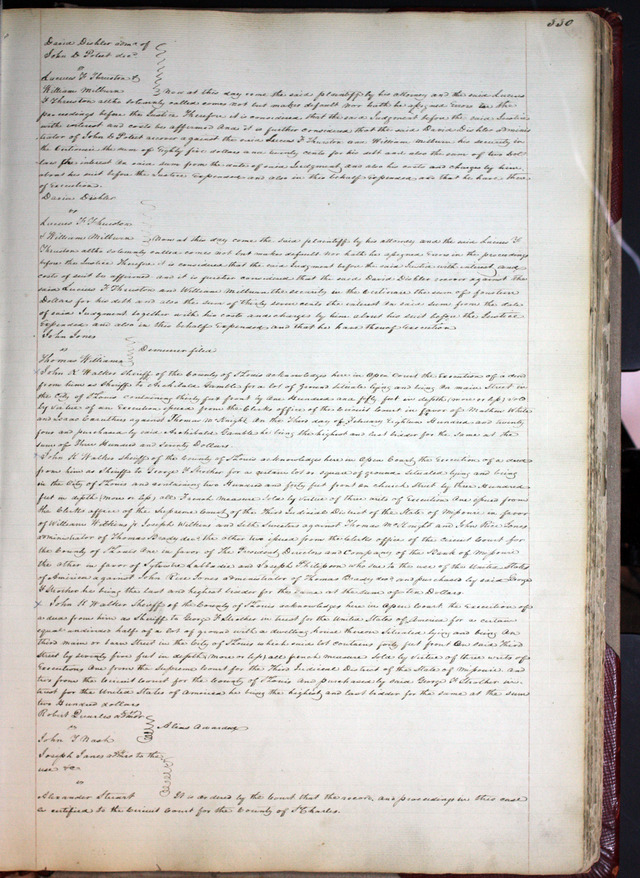 330
David Dishler admr of
John D Petit decd
vs
Lucius F Thruston &
William Milburn Now at this day come the said plaintiff by his attorney and the said Lucius
F Thruston altho solemnly called comes not but makes default nor hath he assigned Errors in the
proceedings before the Justice Therefore it is considered that the said Judgment before the said Justice
with interest and costs be affirmed And it is further considered that the said David Dishler adminis
trator of John D Petit recover against the said Lucius F Thruston and William Milburn his security in
the the sum of Eighty five dollars and twenty cents for his debt and also the sum of two dol
lars the interest on said sum from the date of said Judgment and also his costs and charges by him
about his suit before the Justice Expended and also in this behalf Expended and that he have there
of Execution
David Dishler
vs
Lucius F Thruston
& William Milburn Now at this day come the said plaintiff by his attorney and the said Lucius F
Thruston altho solemnly called comes not but makes default nor hath he assigned Errors in the proceedings
before the Justice Therefore it is considered that the said Judgment before the said Justice with interest and
costs of suit be affirmed and it is further considered that the said David Dishler recover against the
said Lucius F Thruston and William Milburn the security in the the sum of
Dollars for his debt and also the sum of thirty seven cents the interest on said sum from the date
of said Judgment together with his costs and charges by him about his suit before the Justice
Expended and also in this behalf Expended and that he have thereof Execution
John Jones
vs Demurrer filed
Thomas Williams
John K Walker Sheriff of the County of St Louis acknowledges here in Open Court the Execution of a deed
from him as Sheriff to Archibald Gamble for a lot of ground situate lying and being On main Street in
the City of St Louis containing thirty feet front by One Hundred and fifty feet in depth (more or less) sold
by Virtue of an Execution issued from the Clerks office of the Circuit Court in favor of Mathew White
and Isaac Caruthers against Thomas McKnight On the third day of February Eighteen Hundred and twenty
four and purchased by said Archibald Gamble he being the highest and last bidder for the same at the
sum of Three Hundred and Seventy Dollars
John K Walker Sheriff of the County of St Louis acknowledges here in Open Court the Execution of a deed
from him as Sheriff to George F Strother for a certain lot or square of ground situated lying and being
in the City of St Louis and containing two Hundred and forty feet front On church Street by three Hundred
feet in depth (more or less) all French measure Sold by Virtue of three writs of Execution One issued from
the Clerks office of the Supreme Court of the Third Judicial District of the State of Missouri in favor
of William Wilkins Jr Joseph Wilkins and against Thomas McKnight and John Rice Jones
administrator of Thomas Brady decd the other two issued from the Clerks office of the Circuit Court for
the County of St Louis One in favor of The President Directors and Company of the Bank of Missouri
the other in favor of Sylvester Labbadie and Joseph Philipson who sue to the use of the United States
of America against John Rice Jones administrator of Thomas Brady decd and purchased by said George
F Strother he being the last and highest bidder for the same at the sum of ten Dollars
John K Walker Sheriff of the County of St Louis acknowledges here in Open Court the Execution of
a deed from him as Sheriff to George F Strother in trust for the United States of America for a certain
equal undivided half of a lot of ground with a dwelling house thereon Situated lying and being On
third main or barn Street in the City of St Louis which said lot contains forty feet front On said third
Street by seventy five feet in depth (more or less) all french measure sold by Virtue of three writs of
Executions One from the Supreme Court for the Third Judicial District of this State of Missouri And
two from the Circuit Court for the County of St Louis and purchased by said George F Strother in
trust for the United States of America he being the highest and last bidder for the same at the sum
two Hundred dollars
Robert Quarles
vs Alias Awarded
John F Nash
Joseph Janes to the
use &c
vs
Alexander Stuart It is ordered by the Court that the record and proceedings in this case
be certified to the Circuit Court for the County of St Charles